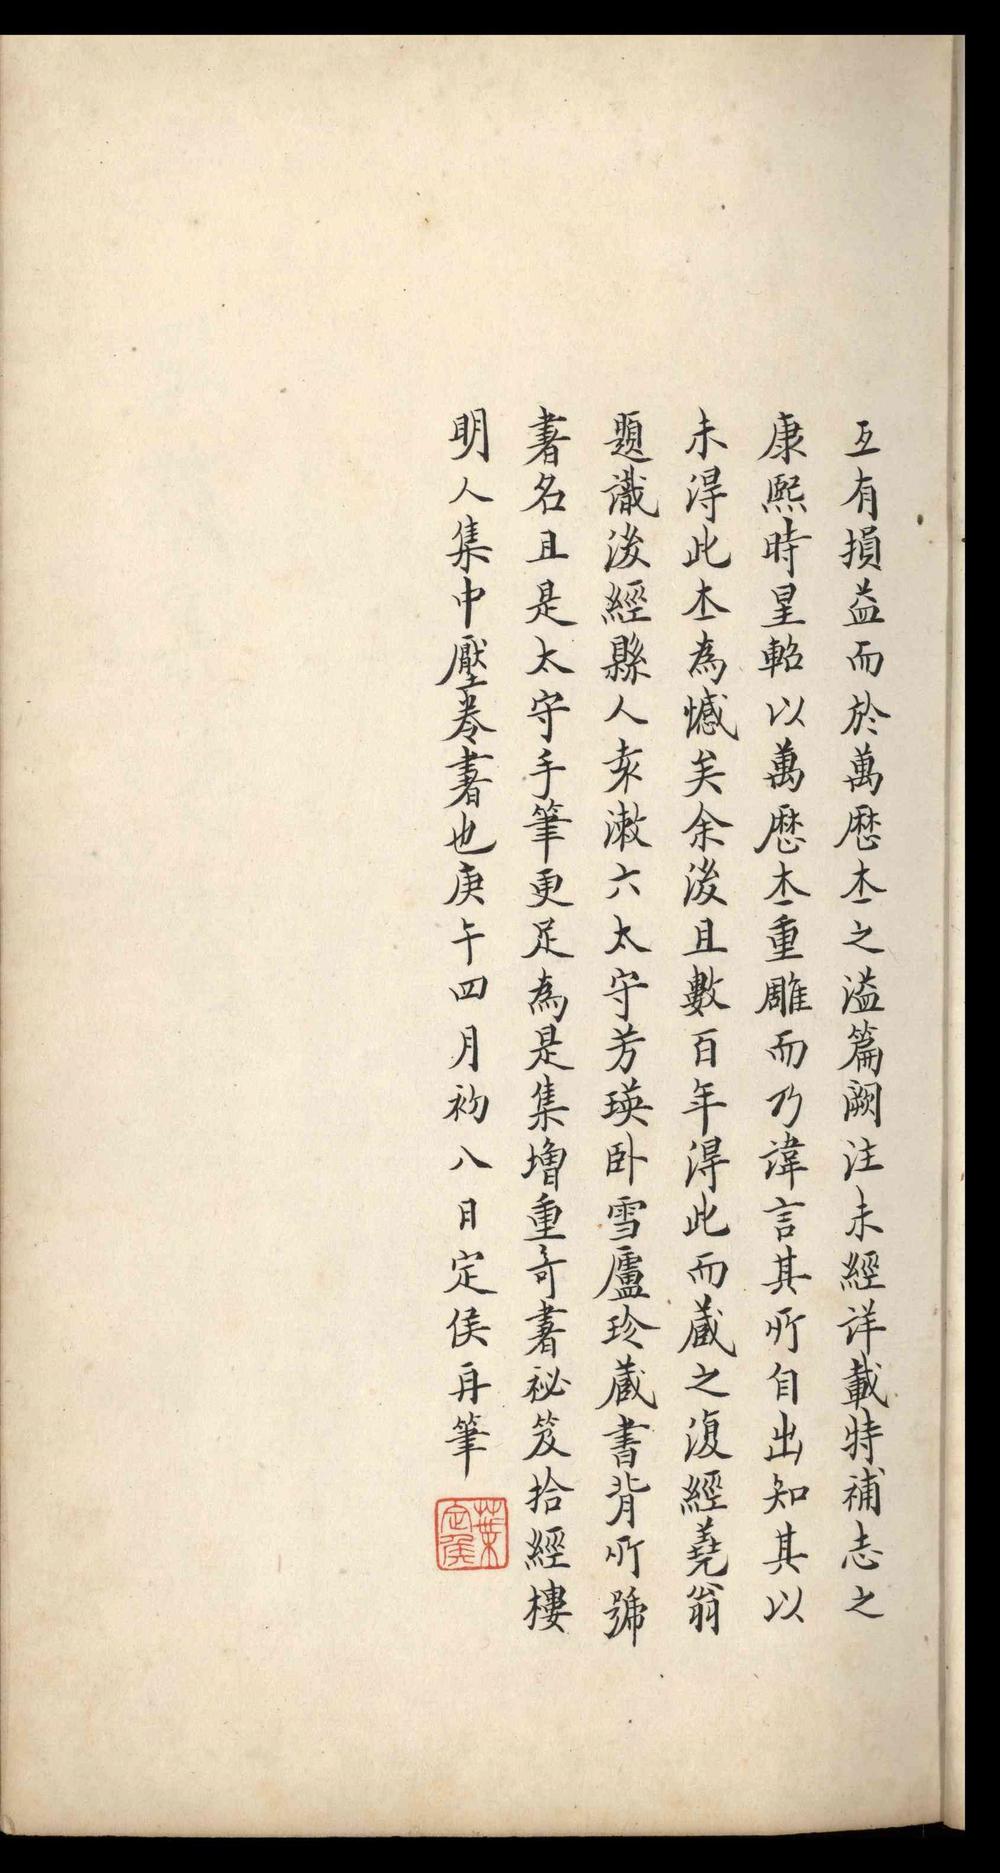 互有損益而於萬厯本之溢篇闕注未經詳載特補志之
康熙時星軺以萬厯本重雕而乃諱言其所自出知其以
未得此本為憾矣余後且數百年得此而藏之復經蕘翁
題識後經縣人袁漱六太守芳瑛卧雪廬珍藏書背所號
書名且是太守手筆更足為是集增重奇書祕笈拾經樓
明人集中壓卷書也庚午四月初八日定侯再筆
葉定侯